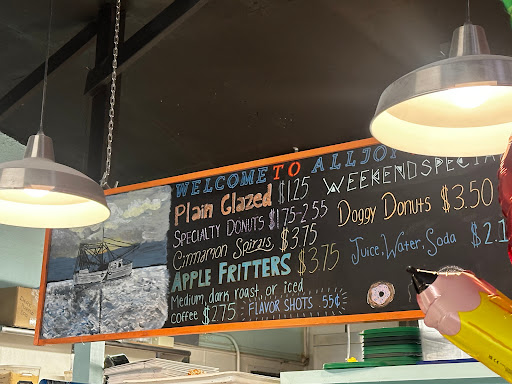 WELCOME TO ALLJOY
Plain Glazed $1.25
SPECIALTY DONUTS $1.75-2.55
Cinnamon Spirals $3.75
APPLE FRITTERS $3.75
Medium, dark roast, or iced
coffee $2.75 FLAVOR SHOTS .55¢
WEEKEND SPECIAL
Doggy Donuts $3.50
Juice, Water, Soda $2.1